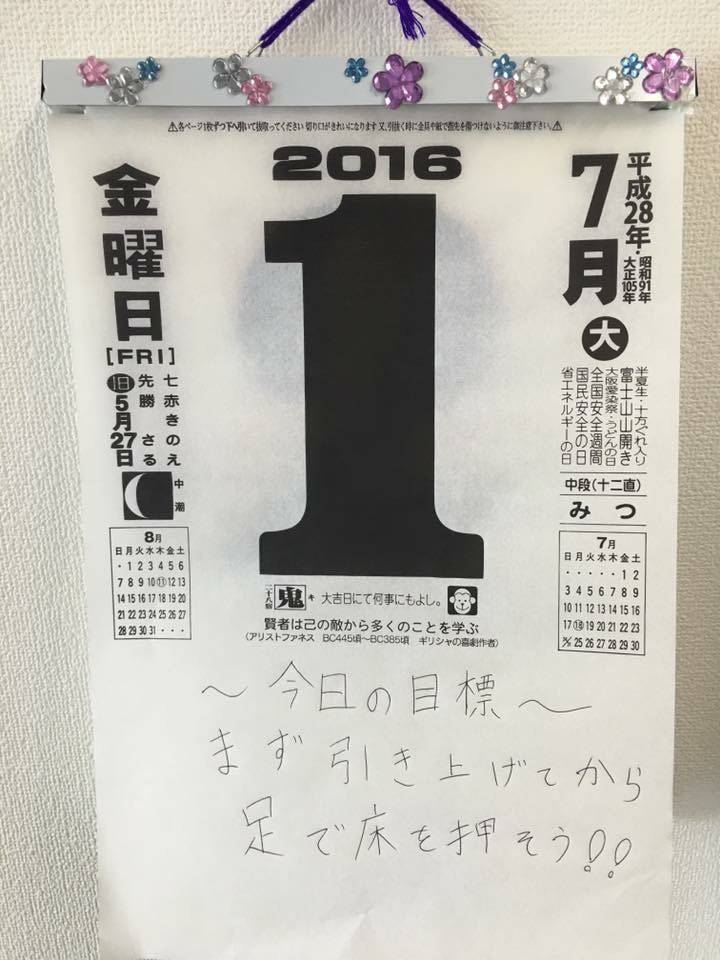 ⚠各ページ1枚ずつ下へ引いて抜取ってください 切り口がきれいになります 又、引抜く時に金具や紙で指先を傷つけないように御注意下さい。⚠
2016
7月
平成28年・昭和91年
大正105年
大
半夏生・十方ぐれ入り
富士山山開き
大阪愛染祭・うどんの日
全国安全週間
国民安全の日
省エネルギーの日
中段(十二直)
みつ
金曜日
[FRI]
七赤きのえ
先勝さる
旧5月27日
中潮
1
8月
日月火水木金土
・123456
78910⑪1213
14151617181920
21222324252627
28293031・・・
7月
日月火水木金土
・・・・・12
3456789
10111213141516
17⑱1920212223
24/31 252627282930
二十八宿 鬼 キ 大吉日にて何事にもよし。
賢者は己の敵から多くのことを学ぶ
(アリストファネス BC445頃〜BC385頃 ギリシャの喜劇作者)
〜今日の目標〜
まず引き上げてから
足で床を押そう!!